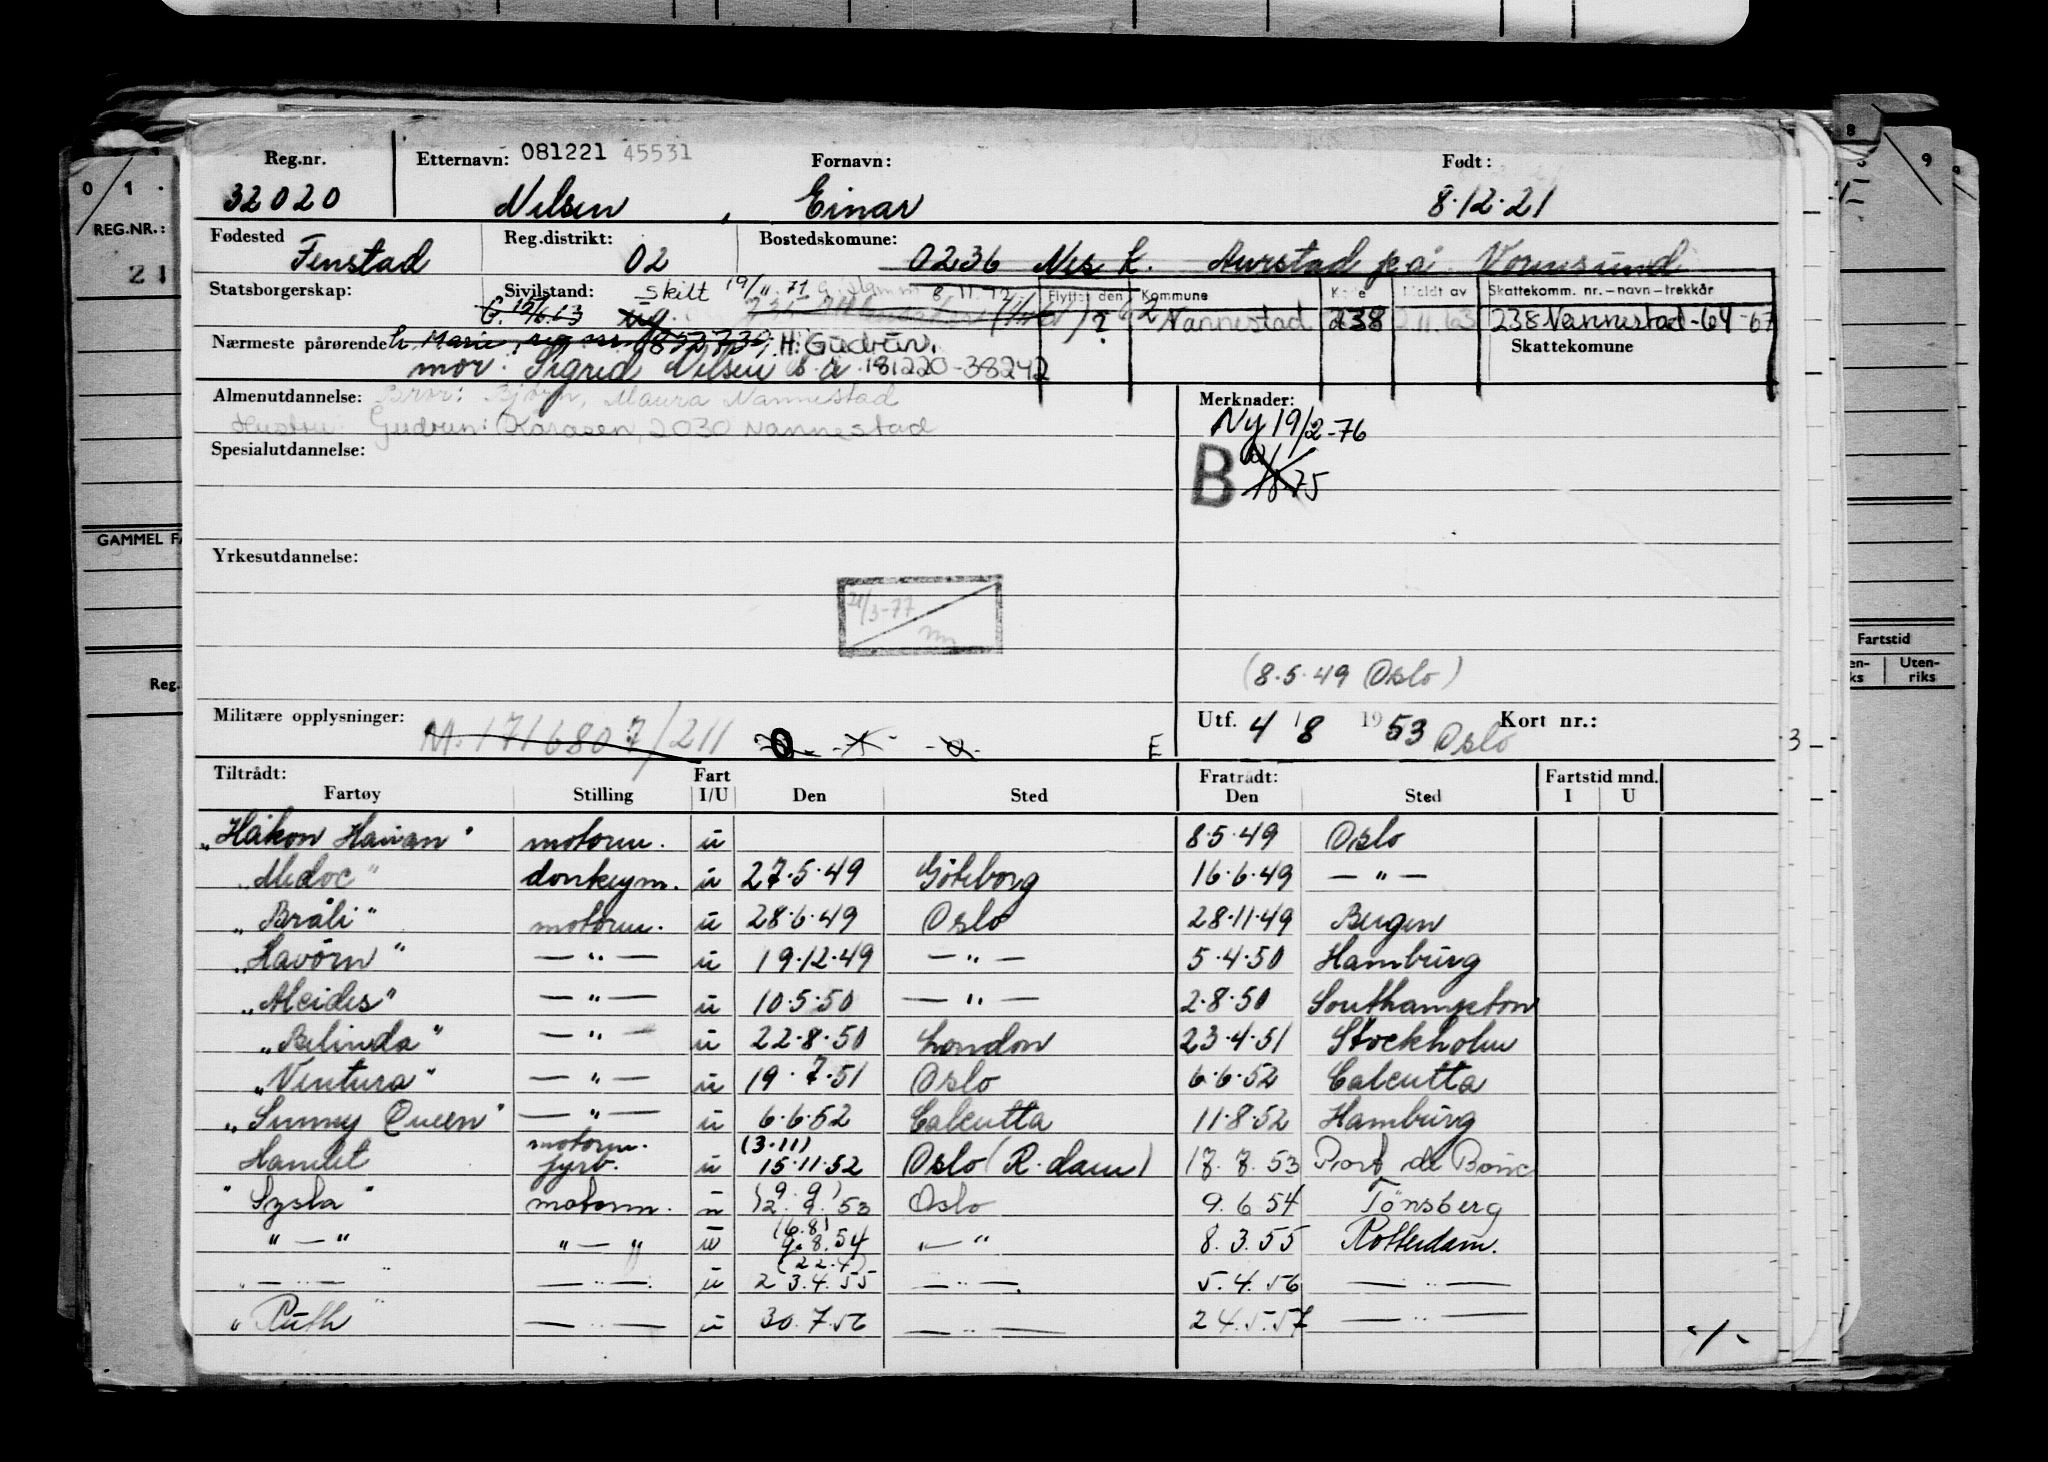 Reg.nr. Etternavn: 081221 45531 Fornavn: Født:
32020 Nilsen, Einar 8.12.21
Fødested Reg.distrikt: Bostedskomune:
Fenstad 02 0236 Nes k. Aurstad på Vormsund
Statsborgerskap: Sivilstand: Skilt 19/11.71 8.11.72. Flyttet den Kommune Kode Meldt av Skattekomm. nr.–navn–trekkår
G. 15/6.63 ug. ? Nannestad 238 2.11.63 238 Nannestad-64-67
Nærmeste pårørende h. Marie, reg nr. H: Gudrun. Skattekomune
mor: Sigrid Nilsen s. a. 181220-38242
Almenutdannelse: Bror: Bjørn, Maura Nannestad Merknader:
Hustru: Gudrun: Kåråsen, 2030 Nannestad Ny 19/2-76
Spesialutdannelse: B 75
Yrkesutdannelse:
21/3-77
(8.5.49 Oslo)
Militære opplysninger: M. 1716807/211 E Utf. 4/8 1953 Oslo Kort nr.:
Tiltrådt: Fart Fratrådt: Fartstid mnd.
Fartøy Stilling I/U Den Sted Den Sted I U
"Håkon Hauan" motorm. u 8.5.49 Oslo
"Medoc" donkeym. u 27.5.49 Göteborg 16.6.49 — " —
"Bråli" motorm. u 28.6.49 Oslo 28.11.49 Bergen
"Havörn" — " — u 19.12.49 — " — 5.4.50 Hamburg
"Alcides" — " — u 10.5.50 — " — 2.8.50 Southampton
"Belinda" — " — u 22.8.50 London 23.4.51 Stockholm
"Ventura" — " — u 19.7.51 Oslo 6.6.52 Calcutta
"Sunny Queen" — " — u 6.6.52 Calcutta 11.8.52 Hamburg
motorm. (3.11)
Hamlet fyrb. u 15.11.52 Oslo (R.dam) 17.7.53 Port de Bouc
"Sysla" motorm. u (9.9) 12.9.53 Oslo 9.6.54 Tönsberg
" — " " — " u (6.8) 9.8.54 " — " 8.3.55 Rotterdam.
— " — — " — u (22.4) 23.4.55 — " — 5.4.56 — " —
"Ruth" — " — u 30.7.56 — " — 24.5.57 — " —
-/-
0 1
REG.NR.:
21
GAMMEL FA
Reg.
8
9
Fartstid
en-ks Uten-riks
3